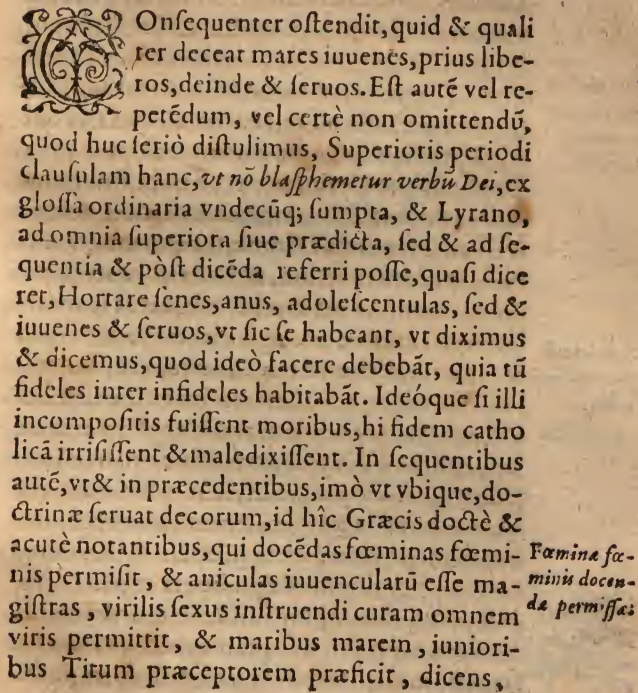 COnſequenter oſtendit, quid & quali
ter deceat mares iuuenes, prius libe-
ros, deinde & ſeruos. Eſt autē vel re-
petēdum, vel certè non omittendū,
quod huc ſeriò diſtulimus, Superioris periodi
clauſulam hanc, vt nō blaſphemetur verbū Dei, ex
gloſſa ordinaria vndecūq; ſumpta, & Lyrano,
ad omnia ſuperiora ſiue prædicta, ſed & ad ſe-
quentia & pòſt dicēda referri poſſe, quaſi dice
ret, Hortare ſenes, anus, adoleſcentulas, ſed &
iuuenes & ſeruos, vt ſic ſe habeant, vt diximus
& dicemus, quod ideò facere debebāt, quia tū
fideles inter infideles habitabāt. Ideóque ſi illi
incompoſitis fuiſſent moribus, hi fidem catho
licā irriſiſſent & maledixiſſent. In ſequentibus
autē, vt & in præcedentibus, imò vt vbique, do-
ctrinæ ſeruat decorum, id hîc Græcis doctè &
acutè notantibus, qui docēdas fœminas fœmi-
nis permiſit, & aniculas iuuencularū eſſe ma-
giſtras, virilis ſexus inſtruendi curam omnem
viris permittit, & maribus marem, iuniori-
bus Titum præceptorem præficit, dicens,
Fœminæ fœ-
minis docen-
dæ permiſſæ: